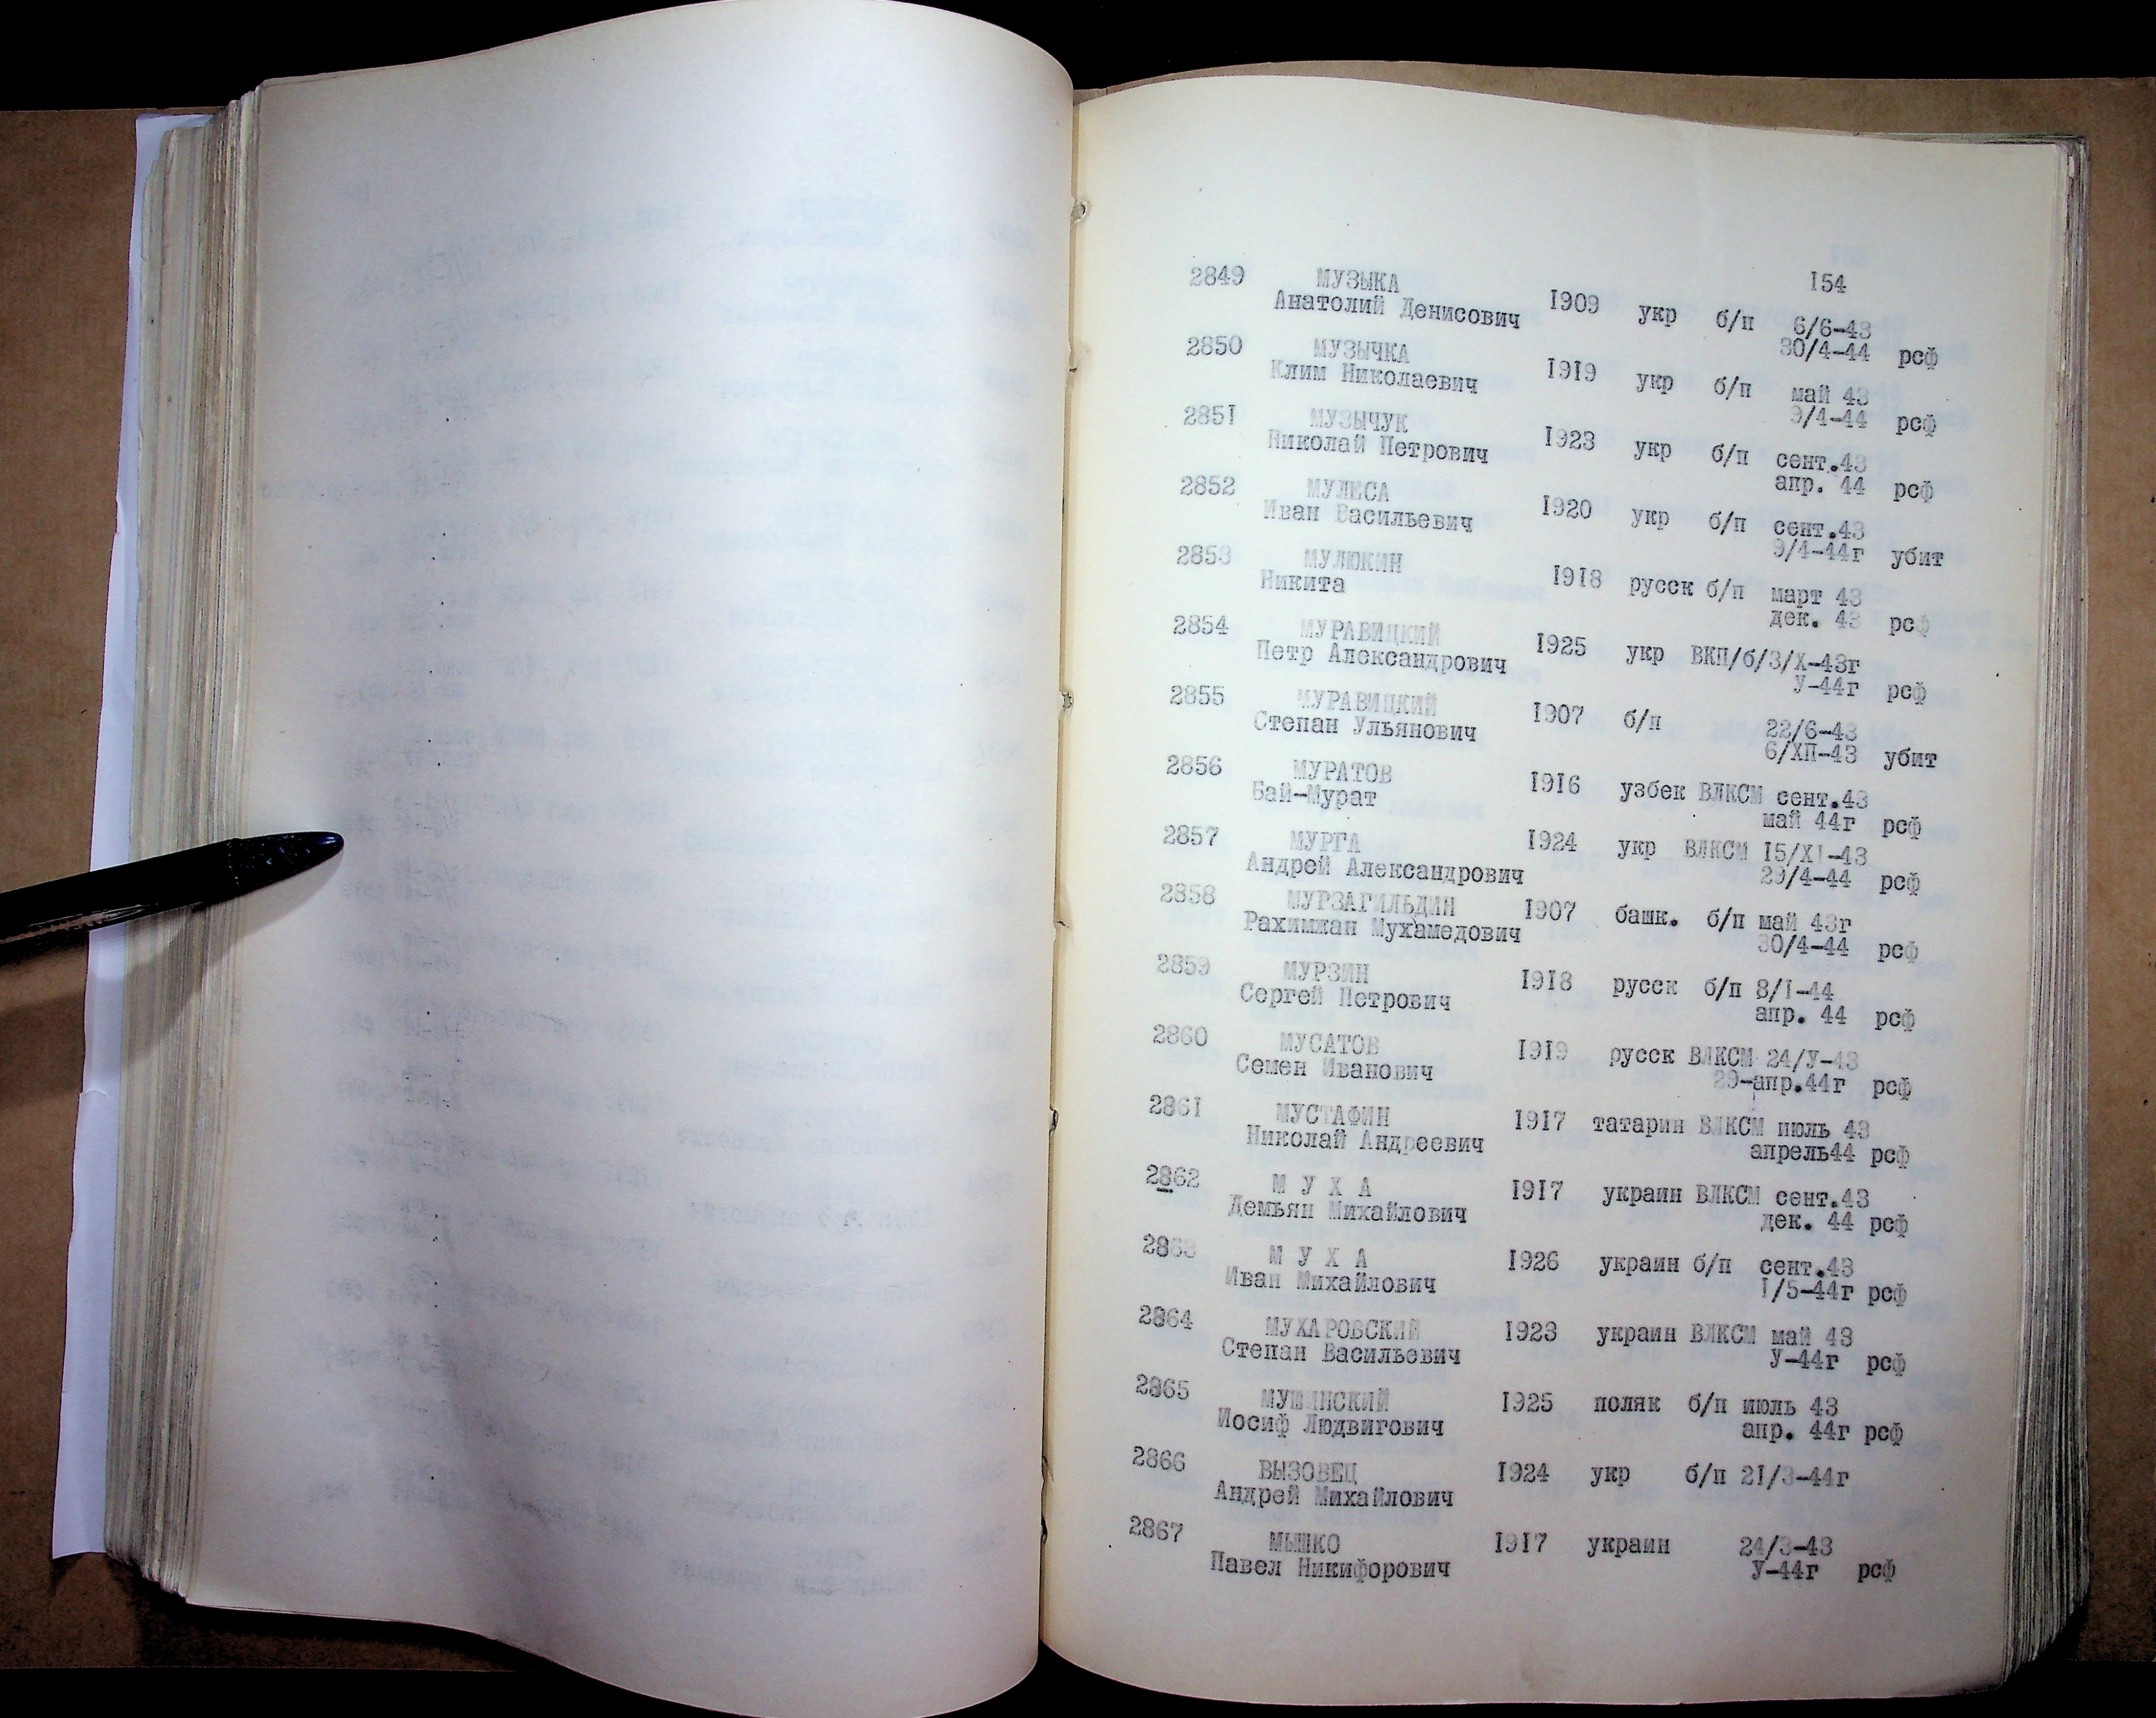 154
2849 МУЗЫКА
Анатолий Денисович 1909 укр б/п 6/6-43
30/4-44 рсф
2850 МУЗЫЧКА
Клим Николаевич 1919 укр б/п май 43
9/4-44 рсф
2851 МУЗЫЧУК
Николай Петрович 1923 укр б/п сент.43
апр. 44 рсф
2852 МУЛЕСА
Иван Васильевич 1920 укр б/п сент.43
9/4-44г убит
2853 МУЛЮКИН
Никита 1918 русск б/п март 43
дек. 43 рсф
2854 МУРАВИЦКИЙ
Петр Александрович 1925 укр ВКП/б/3/Х-43г
У-44г рсф
2855 МУРАВИЦКИЙ
Степан Ульянович 1907 б/п 22/6-43
6/ХП-43 убит
2856 МУРАТОВ
Бай-Мурат 1916 узбек ВЛКСМ сент.43
май 44г рсф
2857 МУРГА
Андрей Александрович 1924 укр ВЛКСМ I5/ХI-43
29/4-44 рсф
2858 МУРЗАГИЛЬДИН
Рахимжан Мухамедович 1907 башк. б/п май 43г
30/4-44 рсф
2859 МУРЗИН
Сергей Петрович 1918 русск б/п 8/I-44
апр. 44 рсф
2860 МУСАТОВ
Семен Иванович 1919 русск ВЛКСМ 24/У-43
29-апр.44г рсф
2861 МУСТАФИН
Николай Андреевич 1917 татарин ВЛКСМ июль 43
апрель44 рсф
2862 М У Х А
Демьян Михайлович 1917 украин ВЛКСМ сент.43
дек. 44 рсф
2863 М У Х А
Иван Михайлович 1926 украин б/п сент.43
I/5-44г рсф
2864 МУХАРОВСКИЙ
Степан Васильевич 1923 украин ВЛКСМ май 43
У-44г рсф
2865 МУШИНСКИЙ
Иосиф Людвигович 1925 поляк б/п июль 43
апр. 44г рсф
2866 ВЫЗОВЕЦ
Андрей Михайлович 1924 укр б/п 21/3-44г
2867 МЫШКО
Павел Никифорович 1917 украин 24/3-43
У-44г рсф